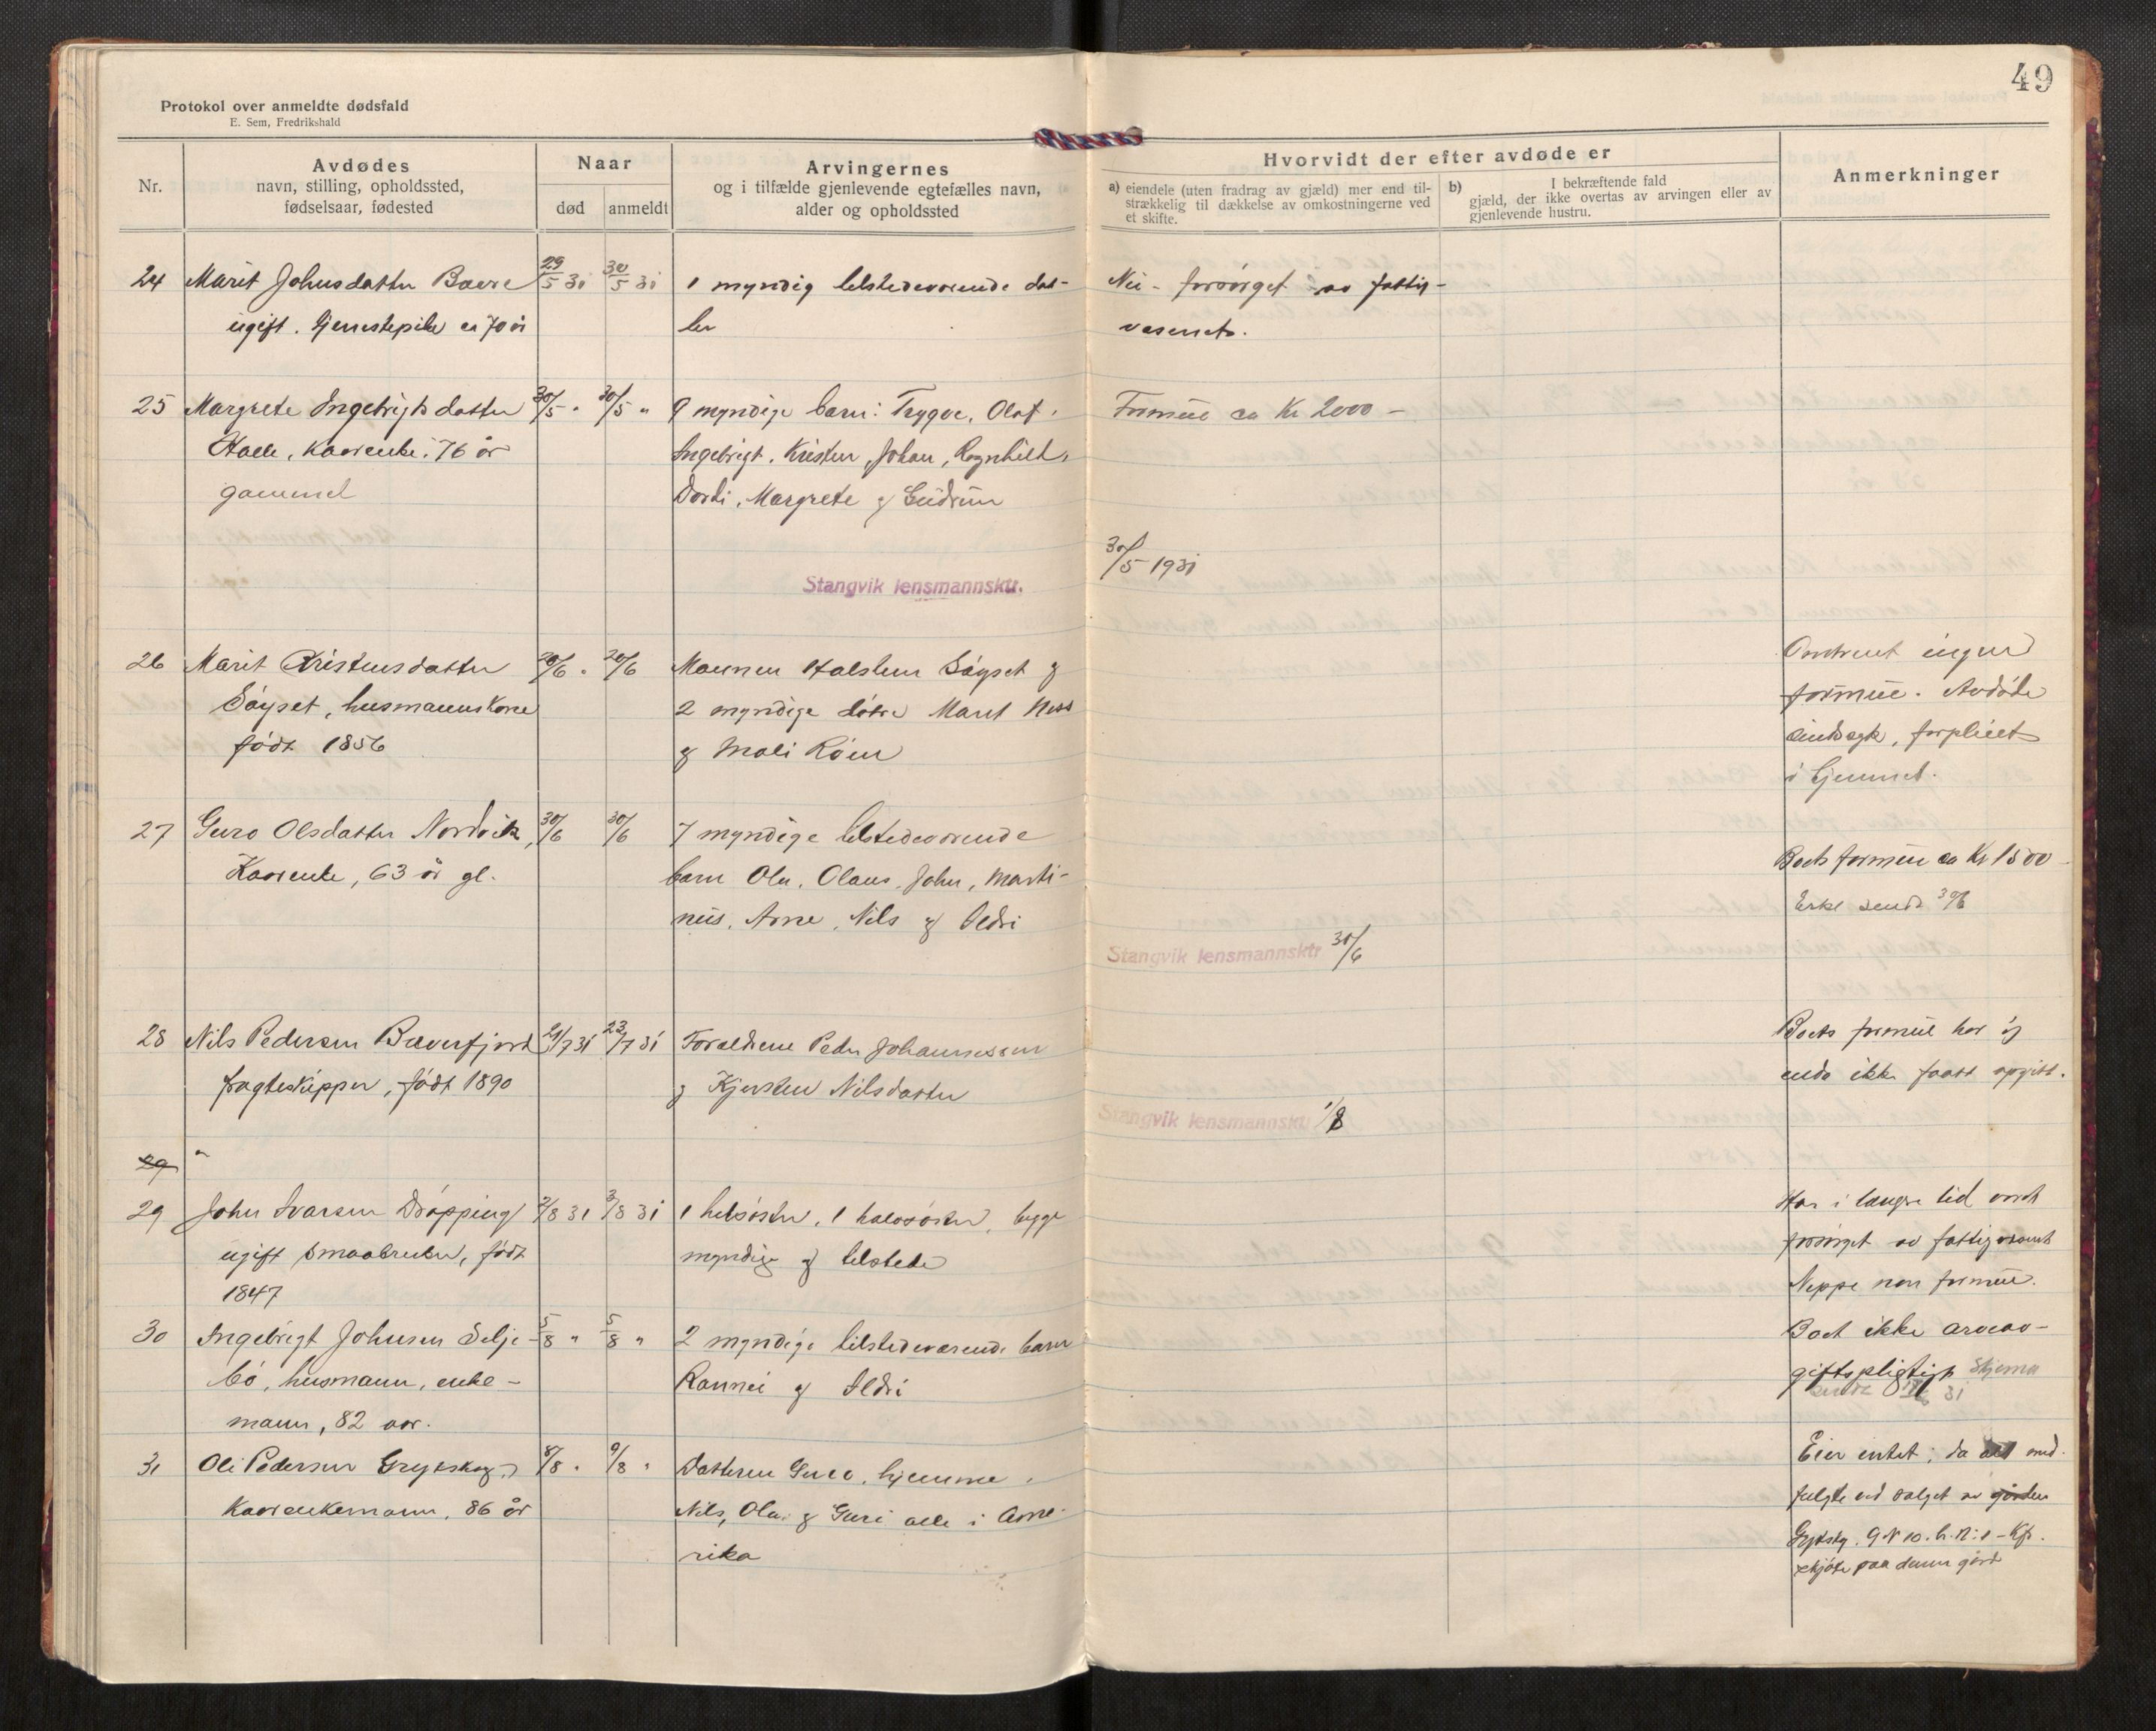 49
Protokol over anmeldte dødsfald
E. Sem, Fredrikshald
Nr.
Avdødes
navn, stilling, opholdssted,
fødselsaar, fødested
Naar
død
anmeldt
Arvingernes
og i tilfælde gjenlevende egtefælles navn,
alder og opholdssted
Hvorvidt der efter avdøde er
a) eiendele (uten fradrag av gjæld) mer end til-
strækkelig til dækkelse av omkostningerne ved
et skifte.
b) I bekræftende fald
gjæld, der ikke overtas av arvingen eller av
gjenlevende hustru.
Anmerkninger
24 Marit Johnsdatter Bævre 29/5 31 30/5 31 1 myndig tilstedeværende dat- Nei - forsørget av fattig-
ugift. tjenestepike ca 70 år ter vesenet.
25 Margrete Ingebrigtsdatter 30/5 " 30/5 " 9 myndige barn: Trygve, Olaf, Formue ca Kr 2000 -
Halle, kaarenke, 76 år Ingebrigt, Kristen, Johan, Ragnhild,
gammel Dordi, Margrete & Gudrun
30/5 1931
Stangvik lensmannsktr.
26 Marit Kristensdatter 20/6 " 20/6 Mannen Halsten Søyset &
Søyset, husmannskone 2 myndige døtre Marit Ness
født 1856 & Mali Røen
Omtrent ingen
formue. Avdøde
sindssyk, forpleiet
i hjemmet.
27 Guro Olsdatter Nordvik, 30/6 30/6 7 myndige tilstedeværende
Kaarenke, 63 år gl. barn Ola, Olaus, John, Marti-
nus, Arne, Nils & Ildri
Boets formue ca Kr 1500 -
Erkl sendt 30/6
Stangvik lensmannsktr 30/6
28 Nils Pedersen Bæverfjord 21/7 31 23/7 31 Foraldrene Peder Johannessen
fragteskipper, født 1890 & Kjersten Nilsdatter
Boets formue har ej
enda ikke faatt opgitt.
Stangvik lensmannsktr 1/8
29 "
29 John Ivarsen Drøpping 2/8 31 3/8 31 1 helsøster, 1 halvsøster, begge
ugift smaabruker, født myndige & tilstede
1847
Har i længre tid vært
forsørget av fattigvæsenet
Neppe non formue.
30 Ingebrigt Johnsen Selje- 5/8 " 5/8 " 2 myndige tilstedeværende barn
bø, husmann, enke- Rannei & Ildri
mann, 82 aar.
Boet ikke arveav-
giftspligtigt Skjema
sendt 31
31 Ole Pedersen Grytskog, 8/8 " 9/8 " Datteren Guro, hjemme,
Kaarenkemann, 86 år Nils, Ola & Guri alle i Ame-
rika
Eier intet, da alt med-
fulgte ved salget av gården
Grytskg. G.N 10. b.n: 1 - Kfr.
skjøte paa denne gård